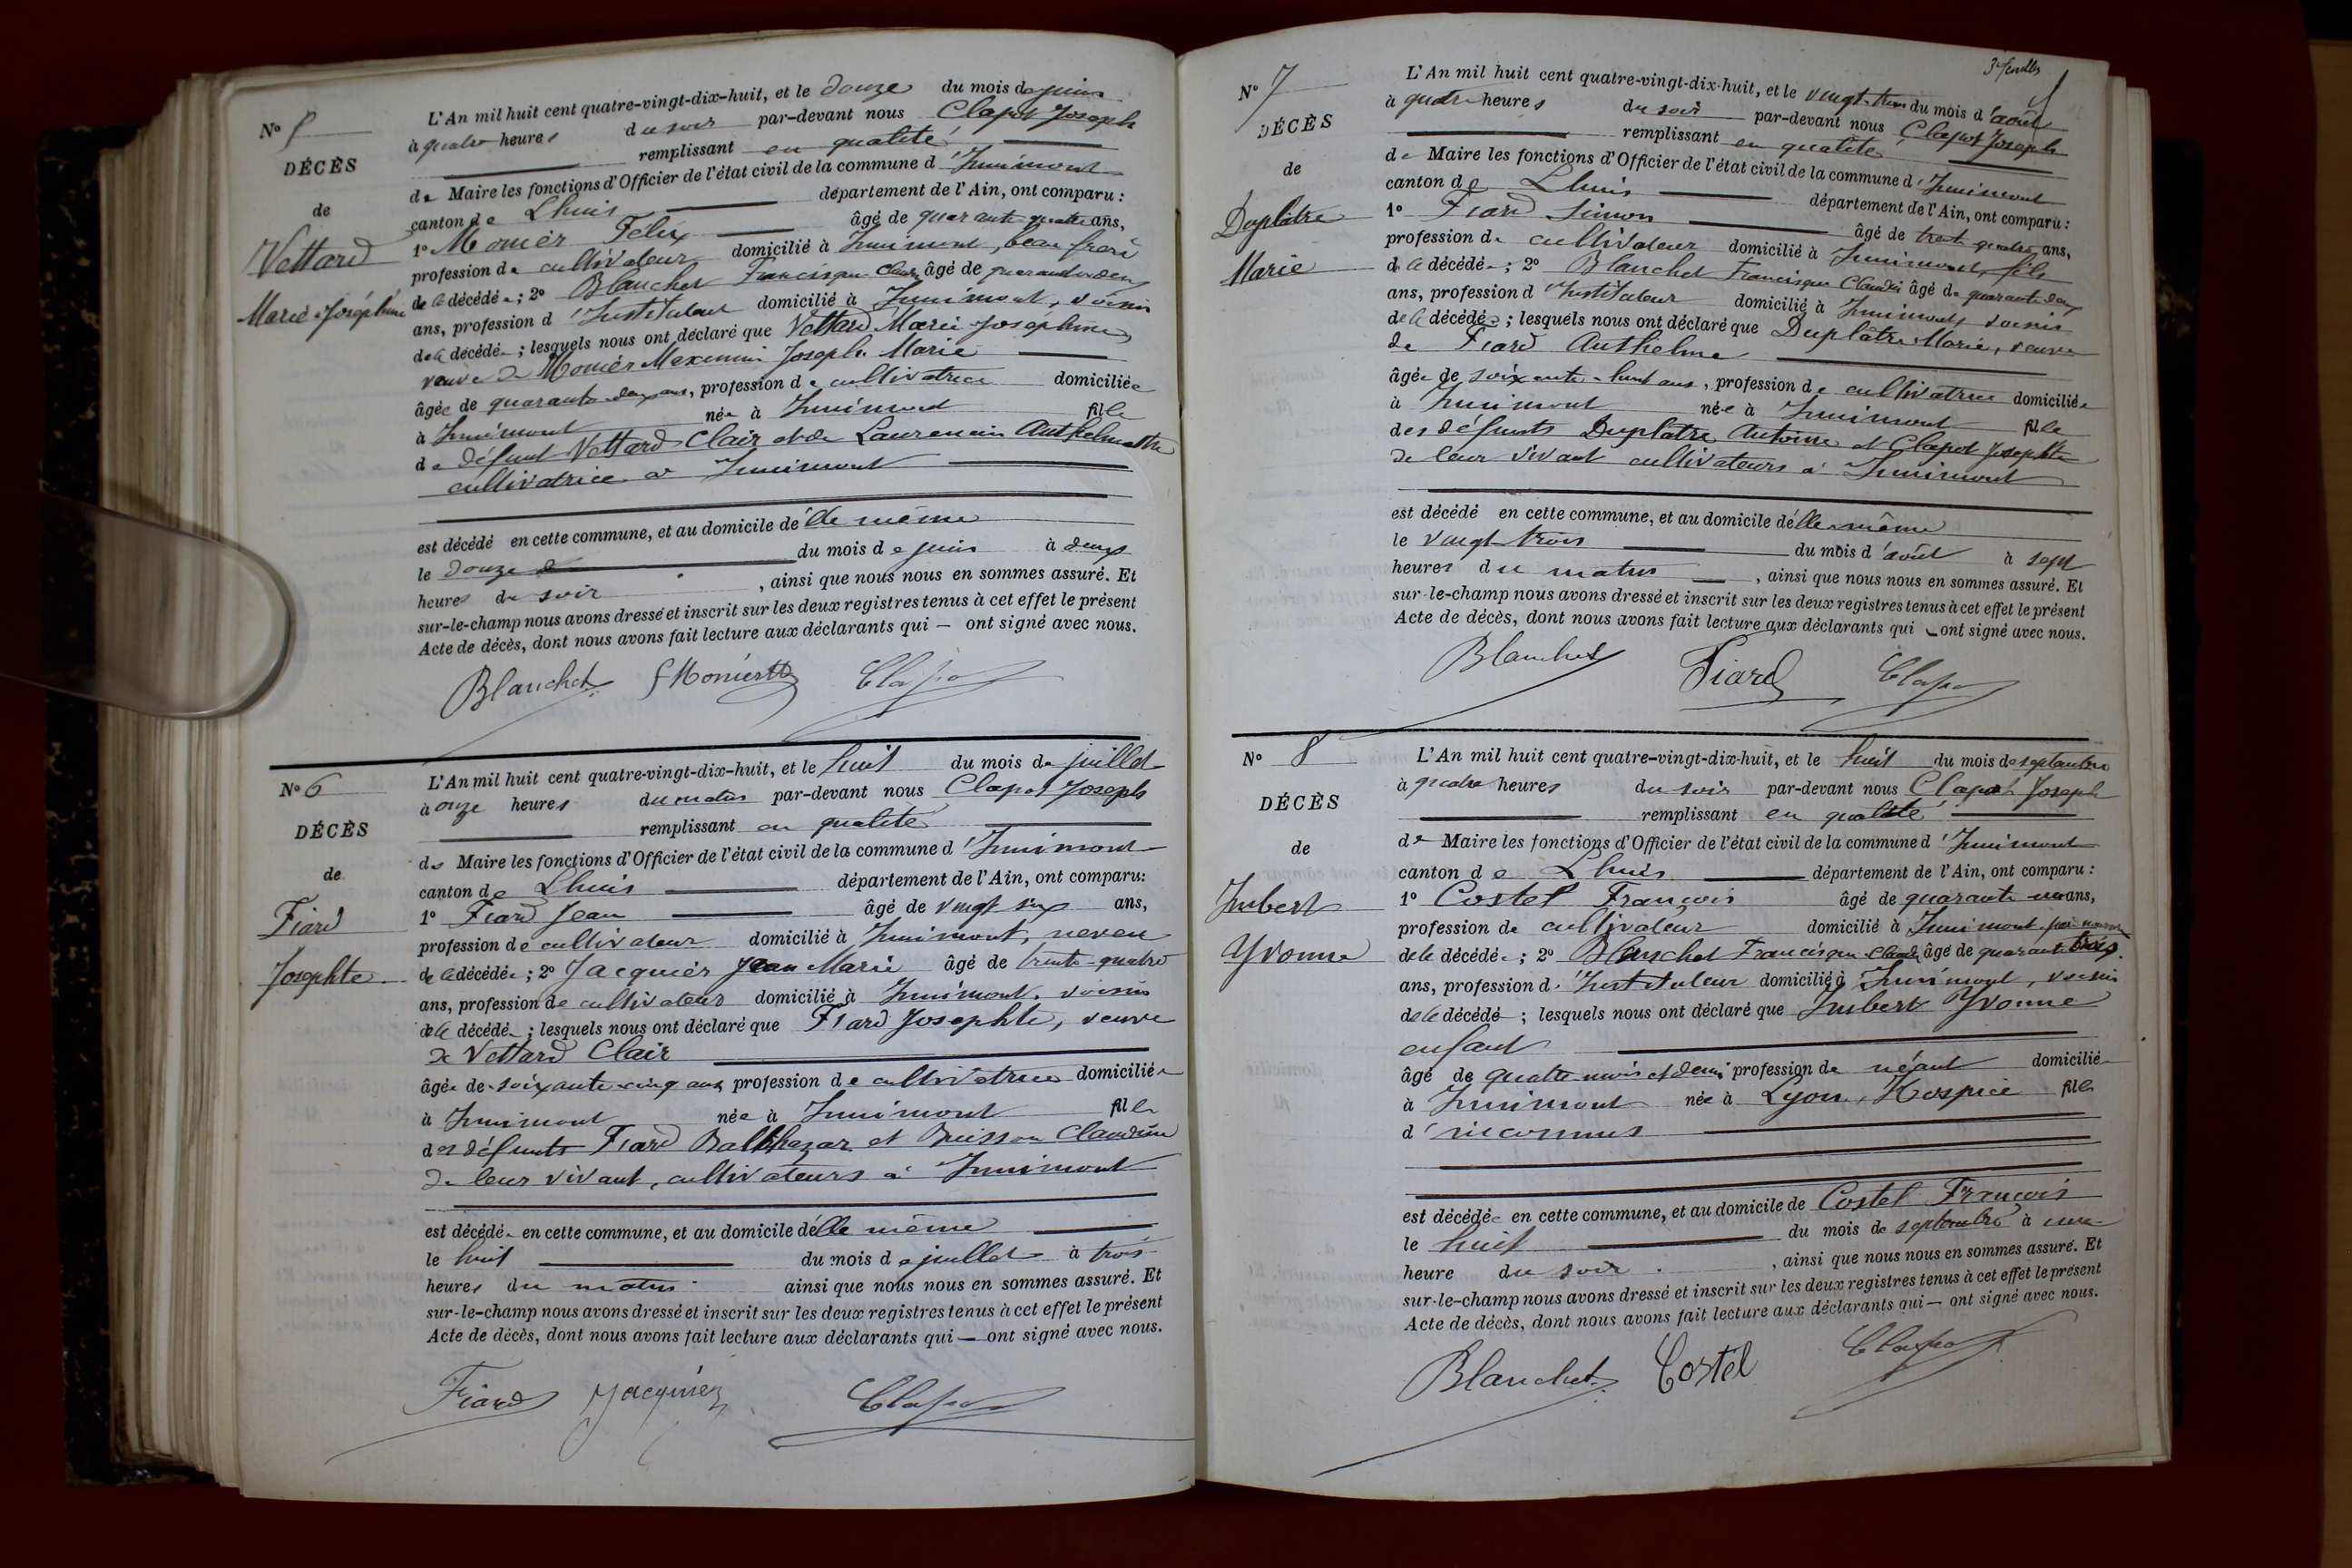 N° 5
DÉCÈS
de
Vettard
Marie Joséphine
L'An mil huit cent quatre-vingt-dix-huit, et le douze du mois de juin
à quatre heures du soir par-devant nous Clapot Joseph
remplissant en qualité
de Maire les fonctions d'Officier de l'état civil de la commune d'Innimont
canton de Lhuis département de l'Ain, ont comparu :
1° Monier Felix âgé de quarante quatre ans,
profession de cultivateur domicilié à Innimont, beau frère
de la décédée ; 2° Blanchet Francisque Claude âgé de quarante deux
ans, profession d'Instituteur domicilié à Innimont, voisin
de la décédée ; lesquels nous ont déclaré que Vettard Marie Joséphine
veuve de Monier Maximin Joseph Marie
âgée de quarante deux ans, profession de cultivatrice domiciliée
à Innimont née à Innimont fille
de défunt Vettard Clair et de Laurencin Anthelmette
cultivatrice à Innimont
est décédé en cette commune, et au domicile de elle même
le douze du mois de juin à deux
heures du soir, ainsi que nous nous en sommes assuré. Et
sur-le-champ nous avons dressé et inscrit sur les deux registres tenus à cet effet le présent
Acte de décès, dont nous avons fait lecture aux déclarants qui — ont signé avec nous.
Blanchet F Monier Clapot
N° 6
DÉCÈS
de
Fiard
Josephte
L'An mil huit cent quatre-vingt-dix-huit, et le huit du mois de juillet
à onze heures du matin par-devant nous Clapot Joseph
remplissant en qualité
de Maire les fonctions d'Officier de l'état civil de la commune d'Innimont
canton de Lhuis département de l'Ain, ont comparu :
1° Fiard Jean âgé de vingt six ans,
profession de cultivateur domicilié à Innimont, neveu
de la décédée ; 2° Jacquier Jean Marie âgé de trente-quatre
ans, profession de cultivateur domicilié à Innimont, voisin
de la décédée ; lesquels nous ont déclaré que Fiard Josephte, veuve
de Vettard Clair
âgée de soixante cinq ans, profession de cultivatrice domiciliée
à Innimont née à Innimont fille
des défunts Fiard Balthazar et Buisson Claudine
de leur vivant, cultivateurs à Innimont
est décédée en cette commune, et au domicile d'elle même
le huit du mois de juillet à trois
heures du matin ainsi que nous nous en sommes assuré. Et
sur-le-champ nous avons dressé et inscrit sur les deux registres tenus à cet effet le présent
Acte de décès, dont nous avons fait lecture aux déclarants qui — ont signé avec nous.
Fiard Jacquier Clapot
3e feuillet
N° 7
DÉCÈS
de
Duplatre
Marie
L'An mil huit cent quatre-vingt-dix-huit, et le vingt-trois du mois d'août
à quatre heures du soir par-devant nous Clapot Joseph
remplissant en qualité
de Maire les fonctions d'Officier de l'état civil de la commune d'Innimont
canton de Lhuis département de l'Ain, ont comparu :
1° Fiard Simon âgé de trente quatre ans,
profession de cultivateur domicilié à Innimont, fils
de la décédée ; 2° Blanchet Francisque Claude âgé de quarante deux
ans, profession d'Instituteur domicilié à Innimont, voisin
de la décédée ; lesquels nous ont déclaré que Duplâtre Marie, veuve
de Fiard Anthelme
âgée de soixante-huit ans, profession de cultivatrice domiciliée
à Innimont née à Innimont fille
des défunts Duplatre Antoine et Clapot Josephte
de leur vivant cultivateurs à Innimont
est décédé en cette commune, et au domicile d'elle même
le vingt trois du mois d'août à sept
heures du matin, ainsi que nous nous en sommes assuré. Et
sur-le-champ nous avons dressé et inscrit sur les deux registres tenus à cet effet le présent
Acte de décès, dont nous avons fait lecture aux déclarants qui — ont signé avec nous.
Blanchet Fiard Clapot
N° 8
DÉCÈS
de
Imbert
Yvonne
L'An mil huit cent quatre-vingt-dix-huit, et le huit du mois de septembre
à quatre heures du soir par-devant nous Clapot Joseph
remplissant en qualité
de Maire les fonctions d'Officier de l'état civil de la commune d'Innimont
canton de Lhuis département de l'Ain, ont comparu :
1° Costel François âgé de quarante un ans,
profession de cultivateur domicilié à Innimont
de la décédée ; 2° Blanchet Francisque Claude âgé de quarante trois
ans, profession d'Instituteur domicilié à Innimont, voisin
de la décédé ; lesquels nous ont déclaré que Imbert Yvonne
enfant
âgé de quatre mois et demi profession de néant domicilié
à Innimont née à Lyon, Hospice fille
d'inconnus
est décédée en cette commune, et au domicile de Costel François
le huit du mois de septembre à une
heure du soir, ainsi que nous nous en sommes assuré. Et
sur-le-champ nous avons dressé et inscrit sur les deux registres tenus à cet effet le présent
Acte de décès, dont nous avons fait lecture aux déclarants qui — ont signé avec nous.
Blanchet Costel Clapot